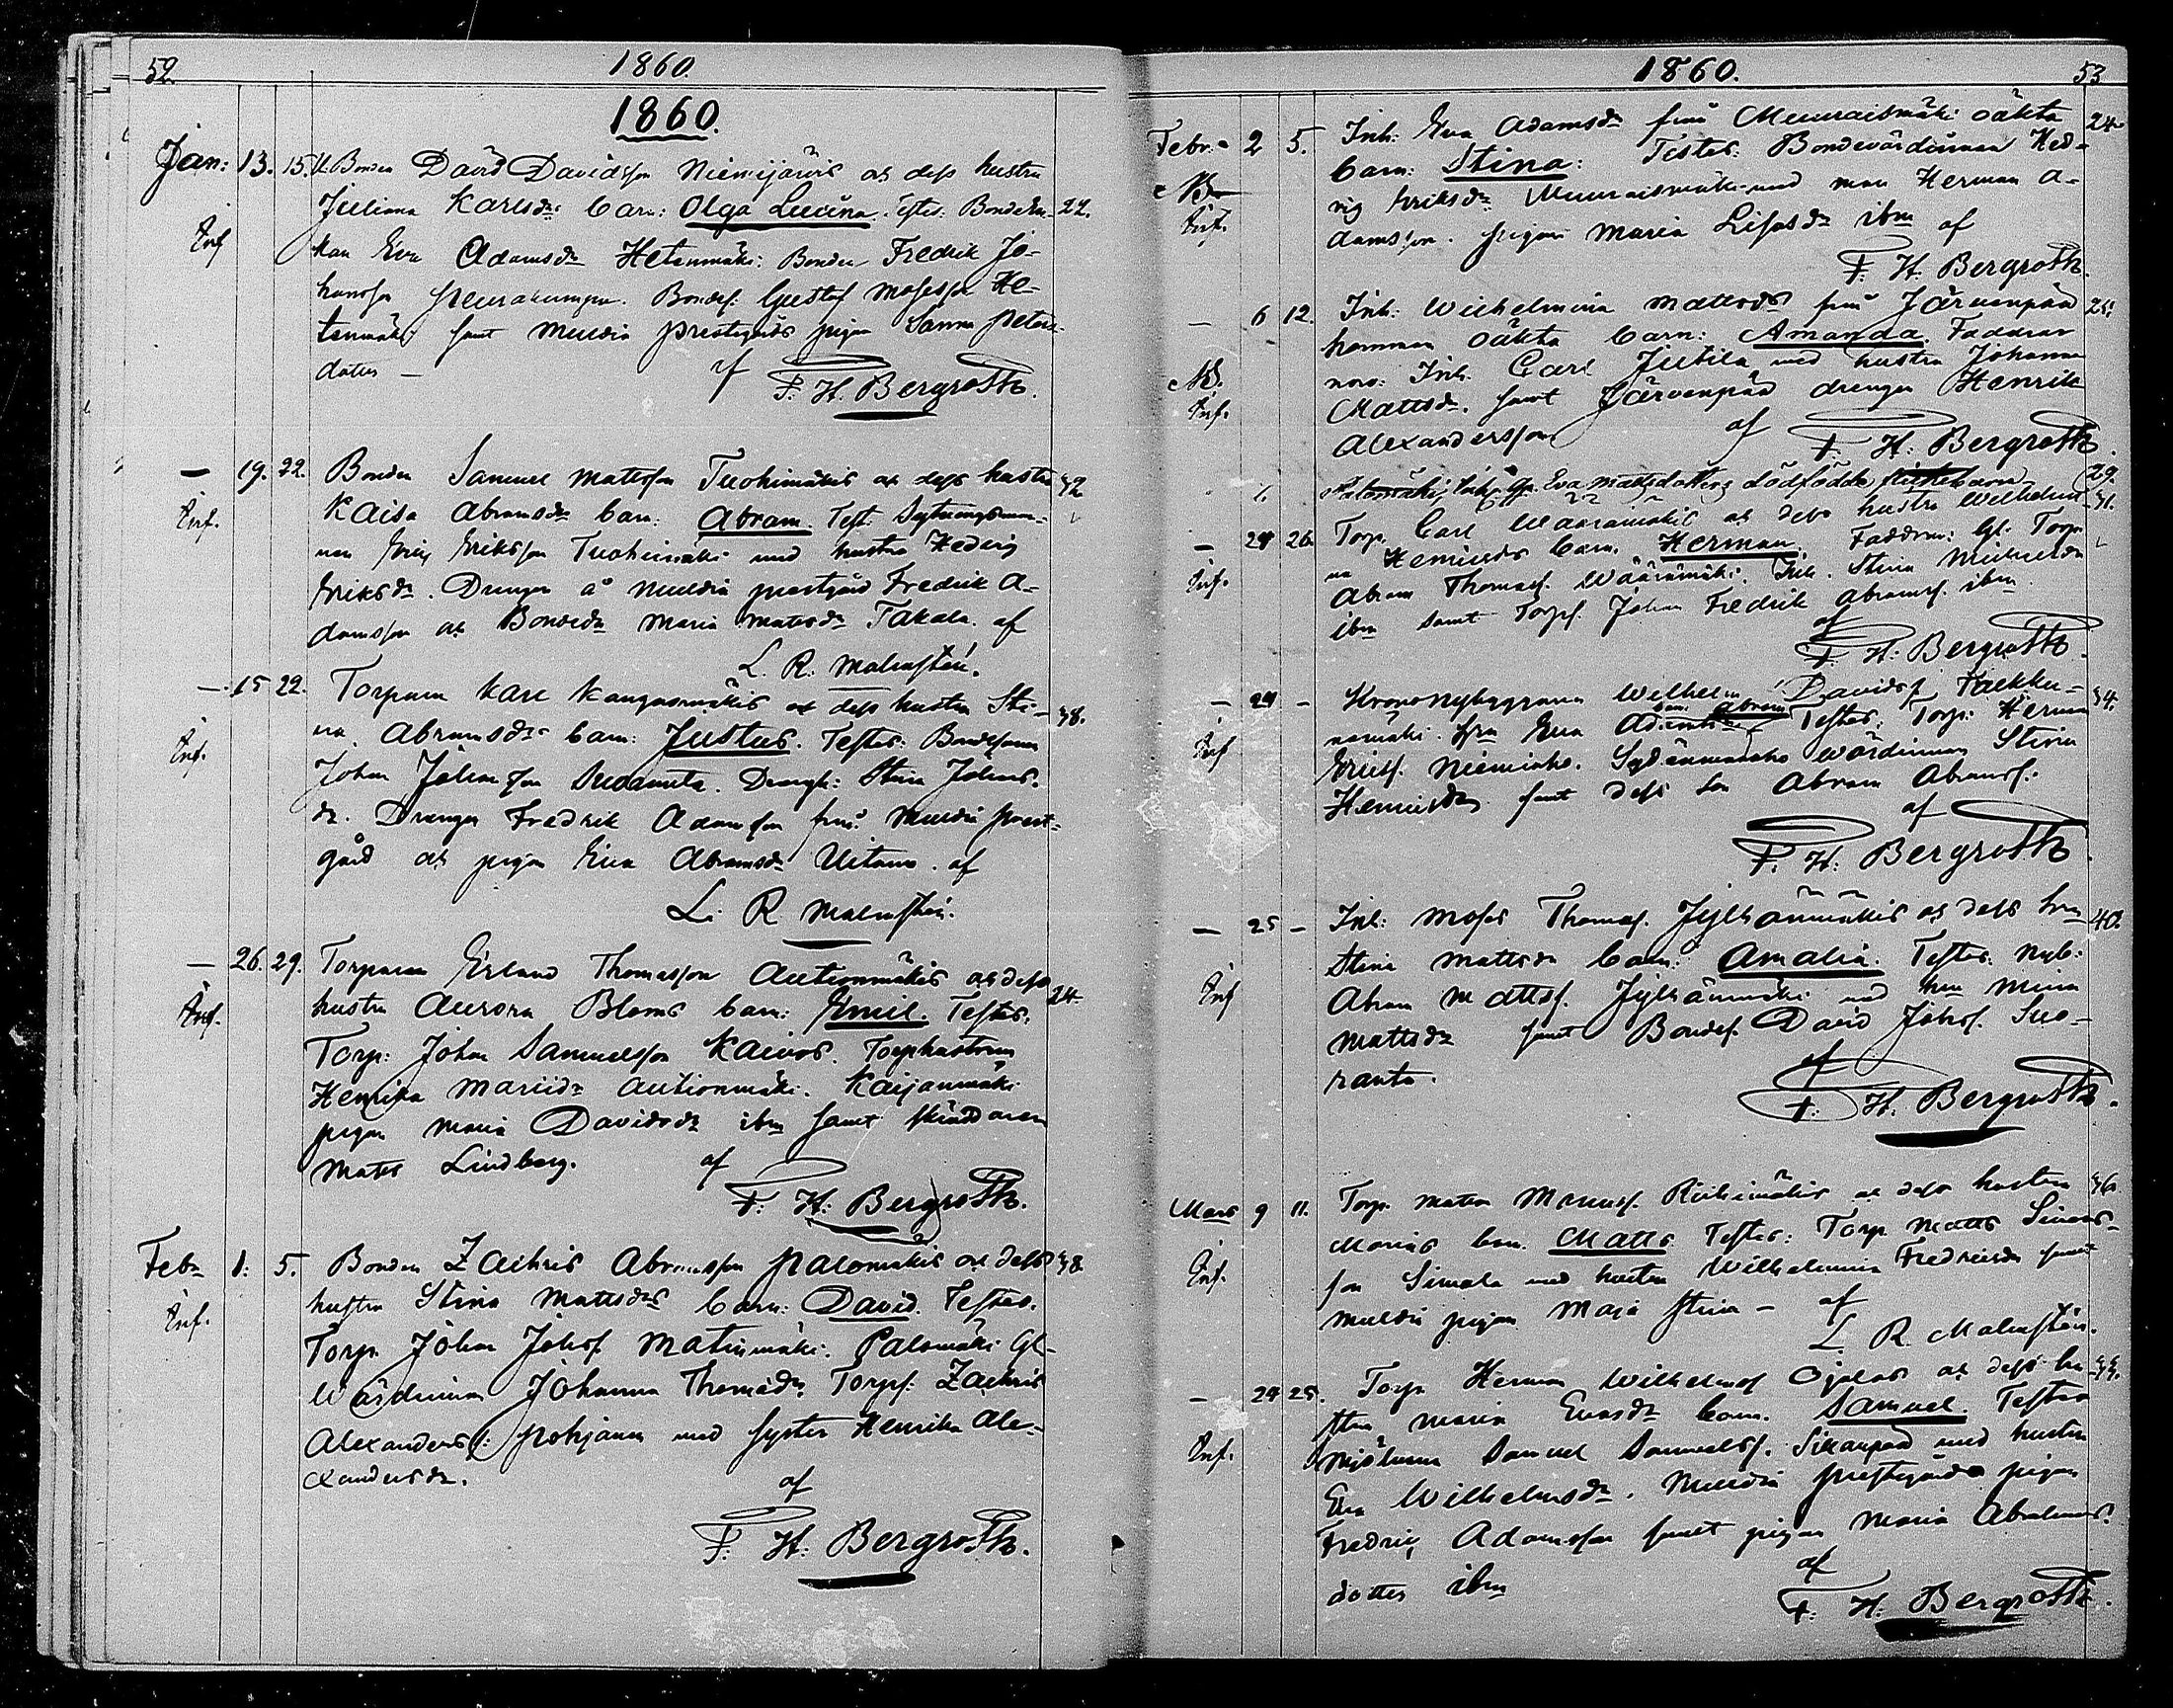 52. 1860.
1860.
Jan: 13. 15. U. Bonden David Davidsson Niemijärvis ok dess hustru
Juliana Karlsdrs barn: Olga Lucina. Testes: Bonde 22.
Inf kan Eva Adamsdr Hetenmäki: Bonden Fredrik Jo-
hansson Peurakumpu. Bondes. Gustaf Mosesson He-
tenmäki samt Muldia prestgårds pigan Sanna Peters-
dotter — af
F. H. Bergroth.
— 19. 22. Bonden Samuel Mattsson Tuohimäkis ok dess hustru 42
Inf. Kaisa Abramsdrs barn: Abram. Test: Sytnings
nen Eric Eriksson Tuohimäki med hustru Hedvig
Eriksdr. Drengen å Muldia prestgård Fredrik A-
damsson ok Bondedr Maria Mattsdr Takala. af
L. R. Malmstén.
— 15 22. Torparen Karl Kangasmäkis ok dess hustru Sti- 38.
Inf. na Abramsdrs barn: Justus. Testes: Bondesonen
Johan Johansson . Drengh: Stina Johans-
dr. Drengen Fredrik Adamsson från Muldia prest-
gård ok pigan Eva Abramsdr . af
L. R. Malmstén.
— 26. 29. Torparen Erland Thomasson Autionmäkis ok dess
Inf. hustru Aurora Bloms barn: Emil. Testes: 24
Torp: Johan Samuelsson Kaivos. Torphustrun
Henrika Mariidr Autionmäki. Kaijanmäki
pigan Maria Davidsdr ibm samt skräddaren
Matts Lindberg. af
F. H. Bergroth.
Febr 1. 5. Bonden Zachris Abramsson Palomäkis ok dess 38
Inf. hustru Stina Mattsdrs barn: David. Testes.
Torp. Johan Johsf Matinmäki. Palomäki Gl-
Värdinnan Johanna Thomsdr. Torpf: Zachris
Alexandersf: Pohjanen med syster Henrika Ale-
xandersdr.
af
F. H. Bergroth.
1860. 53
Febr. 2 5. Inh: Eva Adamsdr från Muuraismäki oäkta 24
NB barn: Stina: Testes: Bondevärdinnan Hed-
Inf. vig Eriksdr Muuraismäki med man Herman A-
damsson. Pigan Maria Lisasdr ibm af
F. H. Bergroth.
— 6 12. Inh: Wilhelmina Mattsdr från Järvenpää 25.
hemman oäkta barn: Amanda. Faddrar
NB. voro: Inh. Carl Jutila med hustru Johanna
Inf. Mattsdr. samt Järvenpää drengen Henrik
Alexandersson af
F. H. Bergroth.
Palomäki, Eva Mattsdotters dödfödda flickebarn 29.
— 24 26. Torp. Carl Wäärämäkis ok dess hustru Wilhelmi- 31.
Inf. na Henricsdrs barn. Herman. Faddrar: Gl. Torp.
Abram Thomasf. Wäärämäki. Inh. Stina Michelsdr
ibm samt Torpf. Johan Fredrik Abramsf. ibm.
af
F. H. Bergroth.
— 24 — Krononybyggaren Wilhelm Davidsf. 34.
Inf nämäki. hru Eva barn: Abram Testes: Torp: Herman
Ericsf. Niemiaho. Sydänmaaho värdinnan Stina
Henricsdr samt dess son Abram Abramsf.
af
F. H. Bergroth.
— 25 — Inh: Moses Thomasf. Jylhänmäkis ok dess hru 40.
Inf Stina Mattsdrs barn: Amalia. Testes. Nyb:
Abram Mattsf. Jylhänmäki med hru Mina
Mattsdr samt Bondef. David Johsf. Suo-
ranta. af
F. H. Bergroth.
Mars 9 11. Torp. Matts Riihimäkis ok dess hustru 36
Inf. Marias barn. Matts. Testes: Torp. Matts Simons-
son Simola med hustru Wilhelmina Fredriksdr samt
Muldia pigan Maja Stina — af
L. R. Malmstén.
— 24 25. Torp. Herman Wilhelmsf Ojalas ok dess hu-
Inf. stru Maria Evasdrs barn. Samuel. Testes
Mjölnaren Samuel Samuelsf. med hustru
Eva Wilhelmsdr. Muldia prestgårds pigan
Fredric Adamsson samt pigan Maria Abrahams-
dotter ibm af
F. H. Bergroth.